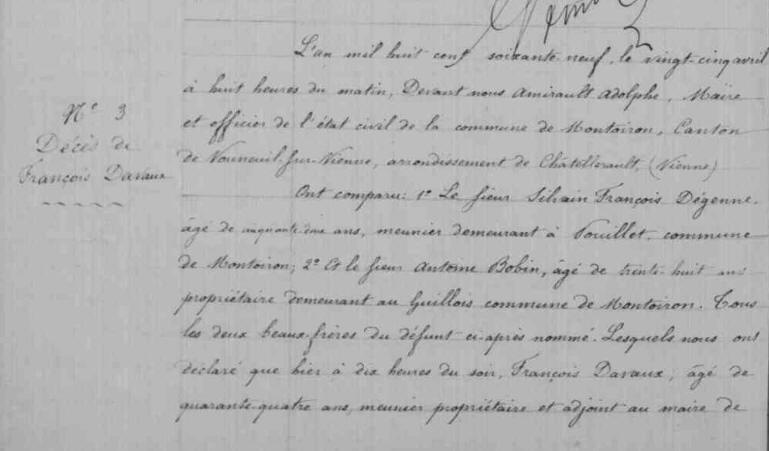 N° 3
Décès de
François Davaux
L'an mil huit cent soixante neuf, le vingt-cinq avril
à huit heures du matin, Devant nous Amirault Adolphe, Maire
et officier de l'état civil de la commune de Montoiron, Canton
de Vouneuil-sur-Vienne, arrondissement de Châtellerault, (Vienne)
Ont comparu: 1° Le sieur Silvain François Dégenne,
âgé de ans, meunier demeurant à Pouillet, commune
de Montoiron; 2° Et le sieur Antoine Bobin, âgé de trente-huit ans
propriétaire demeurant au Guillois commune de Montoiron. Tous
les deux beaux-frères du défunt ci-après nommé. Lesquels nous ont
déclaré que hier à dix heures du soir, François Davaux, âgé de
quarante-quatre ans, meunier propriétaire et adjoint au maire de